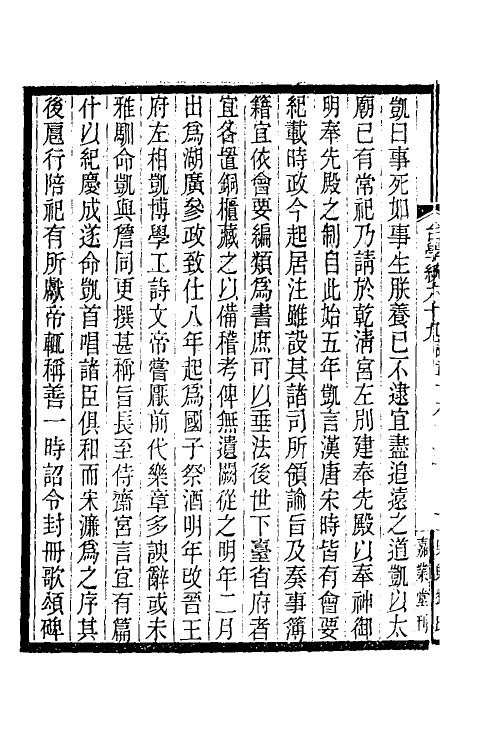 凱曰事死如事生朕養已不逮宜盡追遠之道凱以太
廟已有常祀乃請於乾淸宮左別建奉先殿以奉神御
明奉先殿之制自此始五年凱言漢唐宋時皆有會要
紀載時政今起居注雖設其諸司所領諭旨及奏事簿
籍宜依會要編類爲書庶可以垂法後世下臺省府者
宜各置銅櫃藏之以備稽考俾無遺闕從之明年二月
出爲湖廣參政致仕八年起爲國子祭酒明年改晉王
府左相凱博學工詩文帝嘗厭前代樂章多諛辭或未
雅馴命凱與詹同更撰甚稱旨長至侍齋宮言宜有篇
什以紀慶成遂命凱首唱諸臣俱和而宋濂爲之序其
後扈行陪祀有所獻帝輒稱善一時詔令封冊歌頌碑
嘉業堂刊